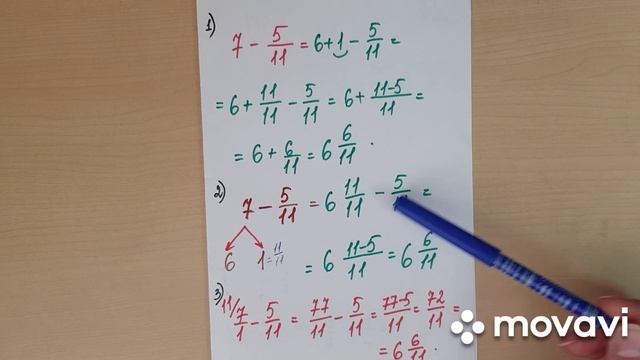 1)
7 - 5/11 = 6+1 - 5/11 =
= 6 + 11/11 - 5/11 = 6 + 11-5/11 =
= 6 + 6/11 = 6 6/11 .
2)
7 - 5/11 = 6 11/11 - 5/11 =
6 1 = 11/11
= 6 11-5/11 = 6 6/11
3)
11/ 7/1 - 5/11 = 77/11 - 5/11 = 77-5/11 = 72/11 =
= 6 6/11 .
movavi